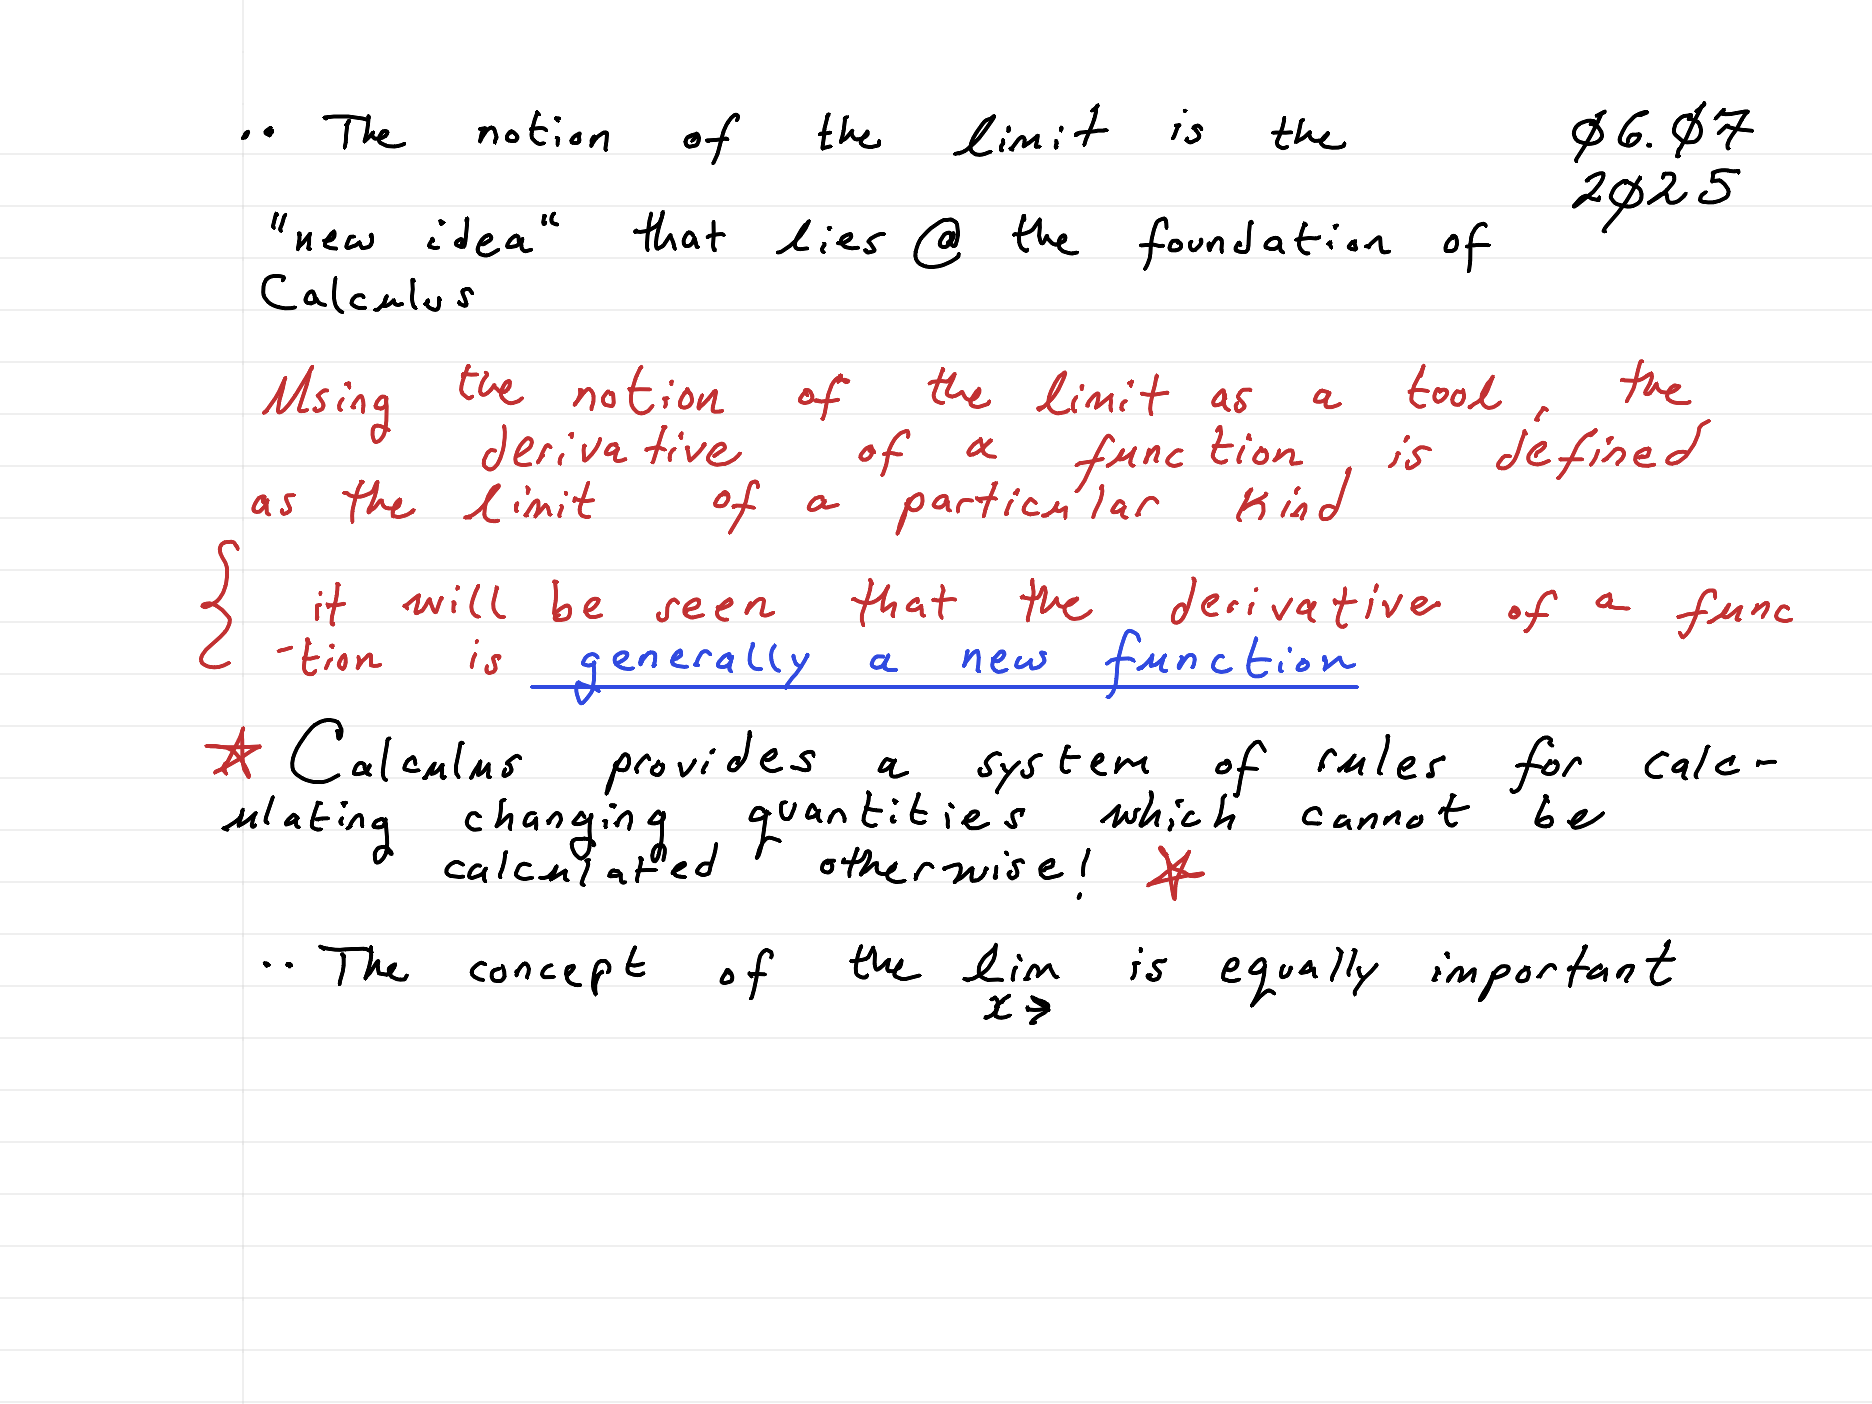 ·· The notion of the limit is the
φ6.φ7
2φ25
"new idea" that lies @ the foundation of
Calculus
Using the notion of the limit as a tool, the
derivative of a function, is defined
as the limit of a particular kind
{ it will be seen that the derivative of a func
-tion is generally a new function
☆ Calculus provides a system of rules for calc-
ulating changing quantities which cannot be
calculated otherwise! ☆
·· The concept of the lim is equally important
x→